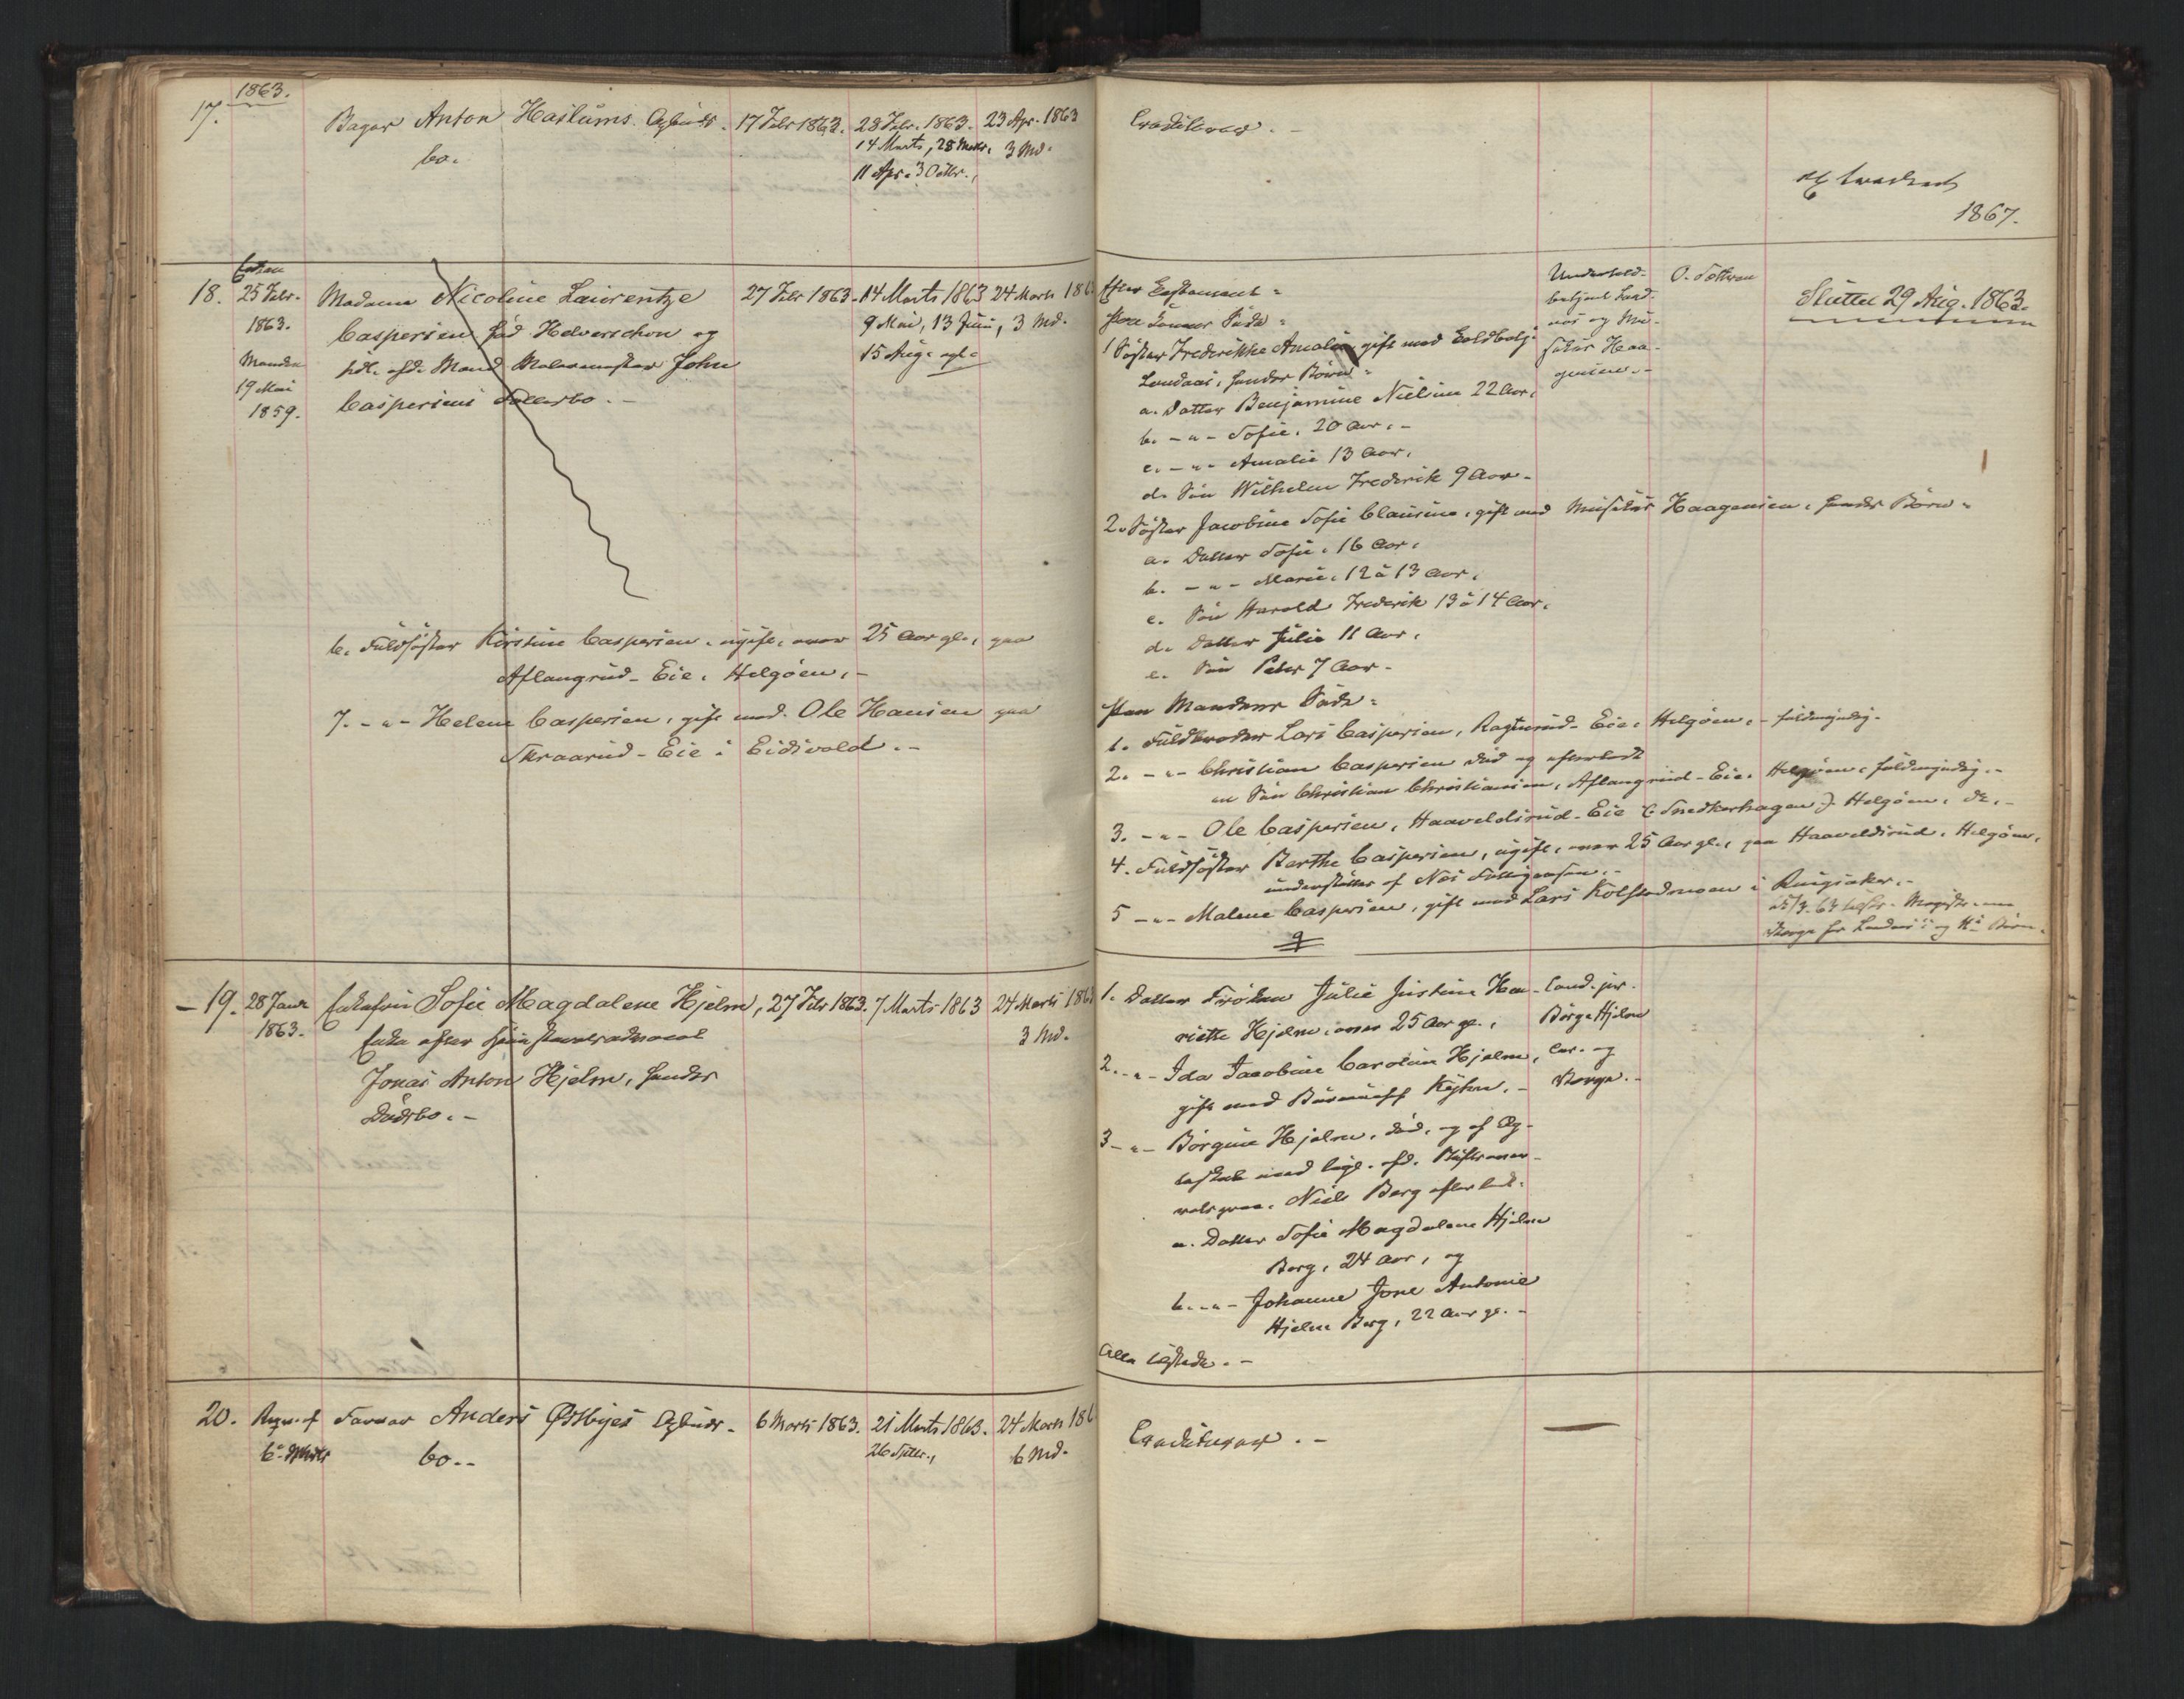 1863.
17. Bager Anton Haslums Opbuds- 17 Febr 1863. 28 Febr. 1863. 23 Apr. 1863
bo. 14 Marts, 28 Marts, 3 Md.
11 Apr. 3 Octbr.,
Creditorer. -
1867.
18. Enken 25 Febr. 1863. Manden 19 Mai 1859.
Madame Nicoline Laurentze 27 Febr 1863. 14 Marts 1863 24 Marts 186
Caspersen fød Halvorsen og 9 Mai, 13 Juni, 3 Md.
tidl. afd. Mand Malermester John 15 Aug.
Caspersens Fællesbo. -
6. Fuldsøster Kirstine Caspersen, ugift, over 25 Aar gl., paa
Aflangrud-Eie, Helgøen, -
7. - " - Helene Caspersen, gift med Ole Hansen paa
Skraarud-Eie i Eidsvold. -
Efter Testament:
paa Konens Side:
1 Søster Frederikke Amalie, gift med Toldbetj.
Landaas, hendes Børn:
a. Datter Benjamine Nielsine 22 Aar,
b. - " - Sofie, 20 Aar, -
c. - " - Amalie 13 Aar,
d. Søn Wilhelm Frederik 9 Aar -
2. Søster Jacobine Sofie Clausine, gift med Musikus Haagensen, hendes Børn:
a. Datter Sofie, 16 Aar,
b. - " - Marie, 12 à 13 Aar,
c. Søn Harald Frederik 13 à 14 Aar,
d. Datter Julie 11 Aar,
e. Søn Peter 7 Aar -
paa Mandens Side:
1. Fuldbroder Lars Caspersen, Eie, Helgøen, - fuldmyndig.
2. - " - Christian Caspersen død og efterladt
en Søn Christian Christiansen, Aflangrud-Eie, Helgøen, fuldmyndig. -
3. - " - Ole Caspersen, Haaveldsrud-Eie (: Snedkerhagen :) Helgøen, do. -
4. Fuldsøster Berthe Caspersen, ugift, over 25 Aar gl., paa Haaveldsrud, Helgøen,
understøttes af
5 - " - Malene Caspersen, gift med Lars Kolstadmoen i Ringsaker. -
Undertold-
betjent Land-
aas og Mu-
sikus Haa-
gensen. -
O.
Sluttet 29 Aug. 1863.
Værge for Landaas's og H's Børn.
9
- 19. 28 Janr 1863. Enkefru Sofie Magdalene Hjelm, 27 Febr 1863. 7 Marts 1863 24 Marts 186
Enke efter 3 Md.
Jonas Anton Hjelm, hendes
Dødsbo. -
1. Datter Frøken Julie Justine Hen-
riette Hjelm, over 25 Aar gl.,
2. - " - Ida Jacobine Caroline Hjelm,
gift med
3 - " - Børgine Hjelm, død, og af Æg-
teskab med ligl. afd.
Niels Berg efterladt:
a. Datter Sofie Magdalene Hjelm
Berg, 24 Aar, og
b. - " - Johanne Antonie
Hjelm Berg, 22 Aar gl. -
Alle tilstede. -
Cand. jur.
Børge Hjelm
Cur. og
Værge. -
20. Faver Anders Østbyes Opbuds- 6 Marts 1863. 21 Marts 1863. 24 Marts 186
6 Marts bo. - 26 Septbr., 6 Md.
Creditorer. -